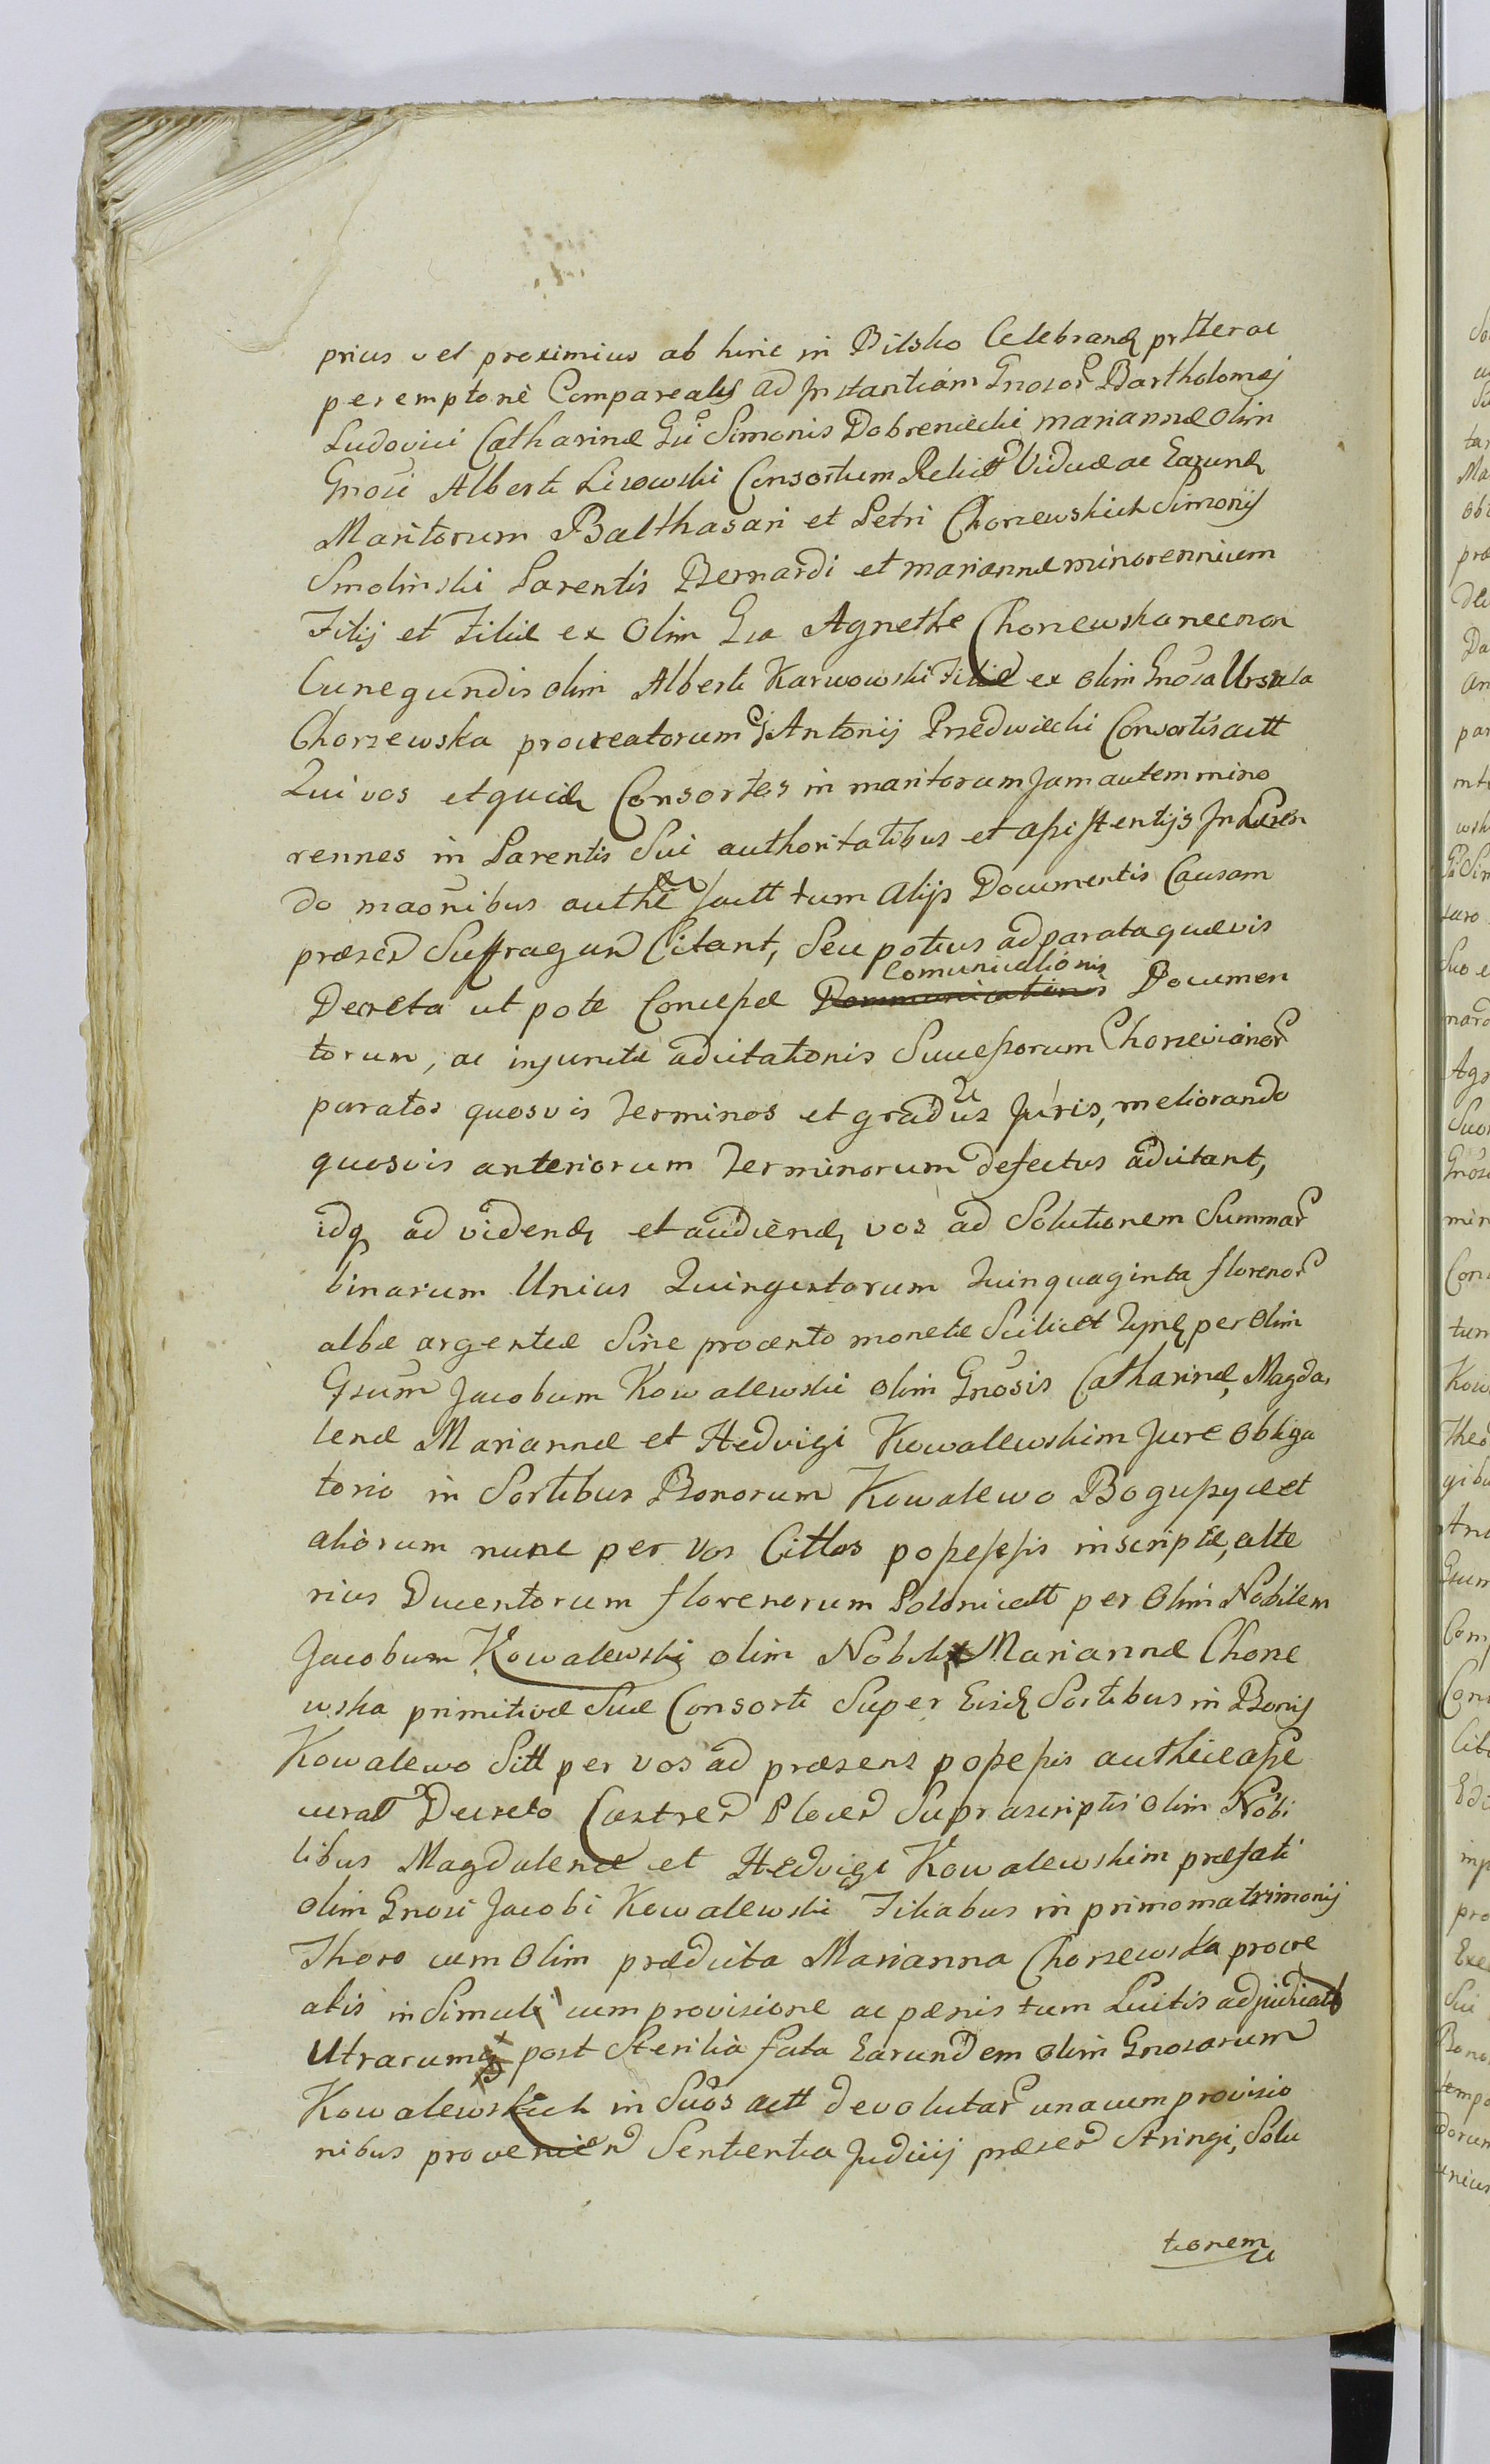 prius vel proximius ab hinc in Bilsko Celebrand prtter ac
peremptorie Compareatis ad Instantiam Gnosor Bartholomaj
Ludovici Catharinæ Gsi Simonis Dobreniecki mariannæ olim
Gnosi Alberti Lisowski Consortum Relict Viduæ ac Earund
Maritorum Balthasari et Petri Chorzewskich Simonis
Smolinski Parentis Bernardi et mariannæ minorennium
Filij et Filiæ ex Olim Gsa Agnethe Chorzewska necnon
Cunegundis olim Alberti Karwowski Filiæ ex olim Gnosa Ursula
Chorzewska procreatorum Antonij Przedwiecki Consortis actt
Qui vos et quid Consortes in maritorum Jam autem mino
rennes in Parentis Sui authoritatibus et assistentijs
do maonibus tum Alijs Documentis Causam
præsen Suffragan Citant, Seu potius ad parata quævis
Decreta ut pote Concessæ Comunicationis Documen
torum, ac injunctæ adcitationis Successorum Chorzevianor
paratos quosvis Terminos et gradus Juris, meliorando
quosvis anteriorum Terminorum defectus adcitant,
idq ad vidend et audiend vos ad Solutionem Summar
binarum Unius Quingentorum Quinquaginta florenor
albæ argenteæ Sine procento monetæ Scilicet Tynf per olim
Gsum Jacobum Kowalewski olim Gnosis Catharinæ, Magda
lenæ Mariannæ et Hedvigi Kowalewskim Jure obliga
torio in Sortibus Bonorum Kowalewo Bogussyce et
aliorum nunc per Vos Cittos possessis inscriptæ, alte
rius Ducentorum florenorum Polonicatt per Olim Nobilem
Jacobum Kowalewski olim Nobili Mariannæ Chorze
wska primitivæ Suæ Consorti Super Eisd Sortibus in Bonis
Kowalewo Sitt per vos ad præsens possessis authce asse
curat Decreto Castren Suprascriptis olim Nobi
libus Magdalenæ et Hedvigi Kowalewskim præfati
olim Gnosi Jacobi Kowalewski Filiabus in primo matrimonij
Thoro cum olim prædicta Marianna Chorzewska procre
atis in Simul cum provisione ac pænis tum Luitis adjudicatt
Utrarumq post Sterilia fata Earundem olim Gnosarum
Kowalewskich in Suos actt devolutar unacum provisio
nibus provenien Sententia Judicij præsen Stringi, Solu
tionem